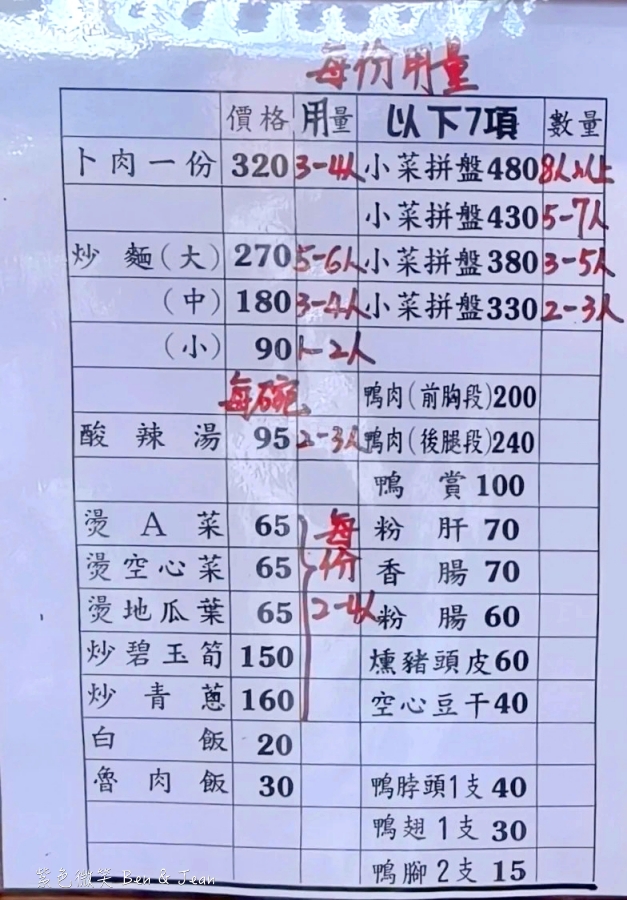 每份用量
價格 用量 以下7項 數量
卜肉一份 320 3-4人 小菜拼盤480 8人以上
小菜拼盤430 5-7人
炒麵(大) 270 5-6人 小菜拼盤380 3-5人
(中) 180 3-4人 小菜拼盤330 2-3人
(小) 90 1-2人
每碗 鴨肉(前胸段)200
酸辣湯 95 2-3人 鴨肉(後腿段)240
鴨賞100
燙A菜 65 每 粉肝 70
燙空心菜 65 份 香腸 70
燙地瓜葉 65 2-4人 粉腸 60
炒碧玉筍 150 燻豬頭皮60
炒青蔥 160 空心豆干40
白飯 20
魯肉飯 30 鴨脖頭1支 40
鴨翅1支 30
鴨腳2支 15
紫色微笑 Ben & Jean